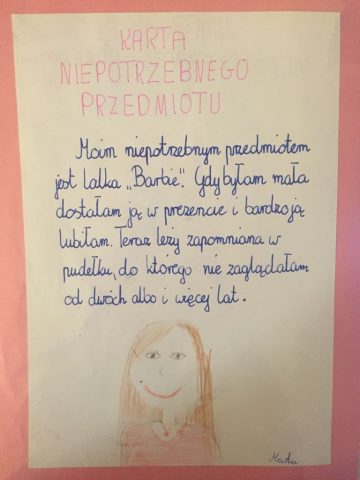 KARTA
NIEPOTRZEBNEGO
PRZEDMIOTU
Moim niepotrzebnym przedmiotem
jest lalka „Barbie". Gdy byłam mała
dostałam ją w prezencie i bardzo ją
lubiłam. Teraz leży zapomniana w
pudełku, do którego nie zaglądałam
od dwóch albo i więcej lat.